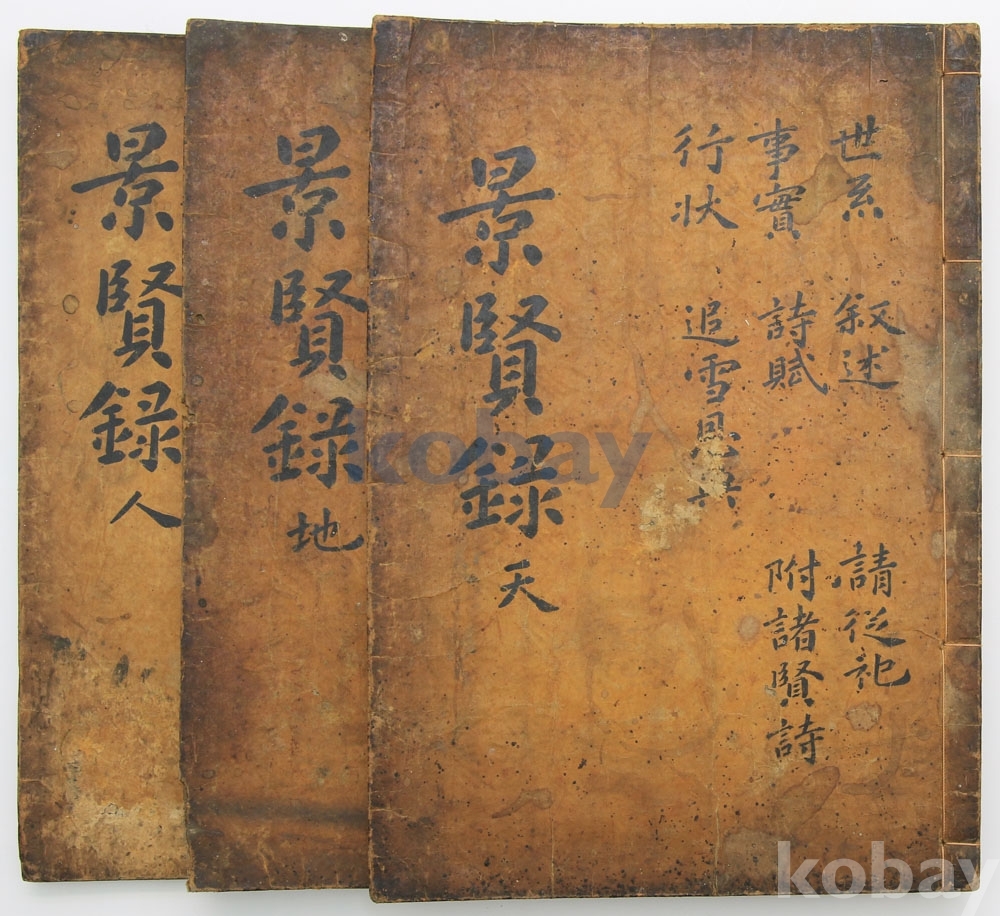 世系 叙述 請從祀
事實 詩賦 附諸賢詩
行状 追雪恩
景賢録 天
景賢録 地
景賢録 人
kobay
kobay